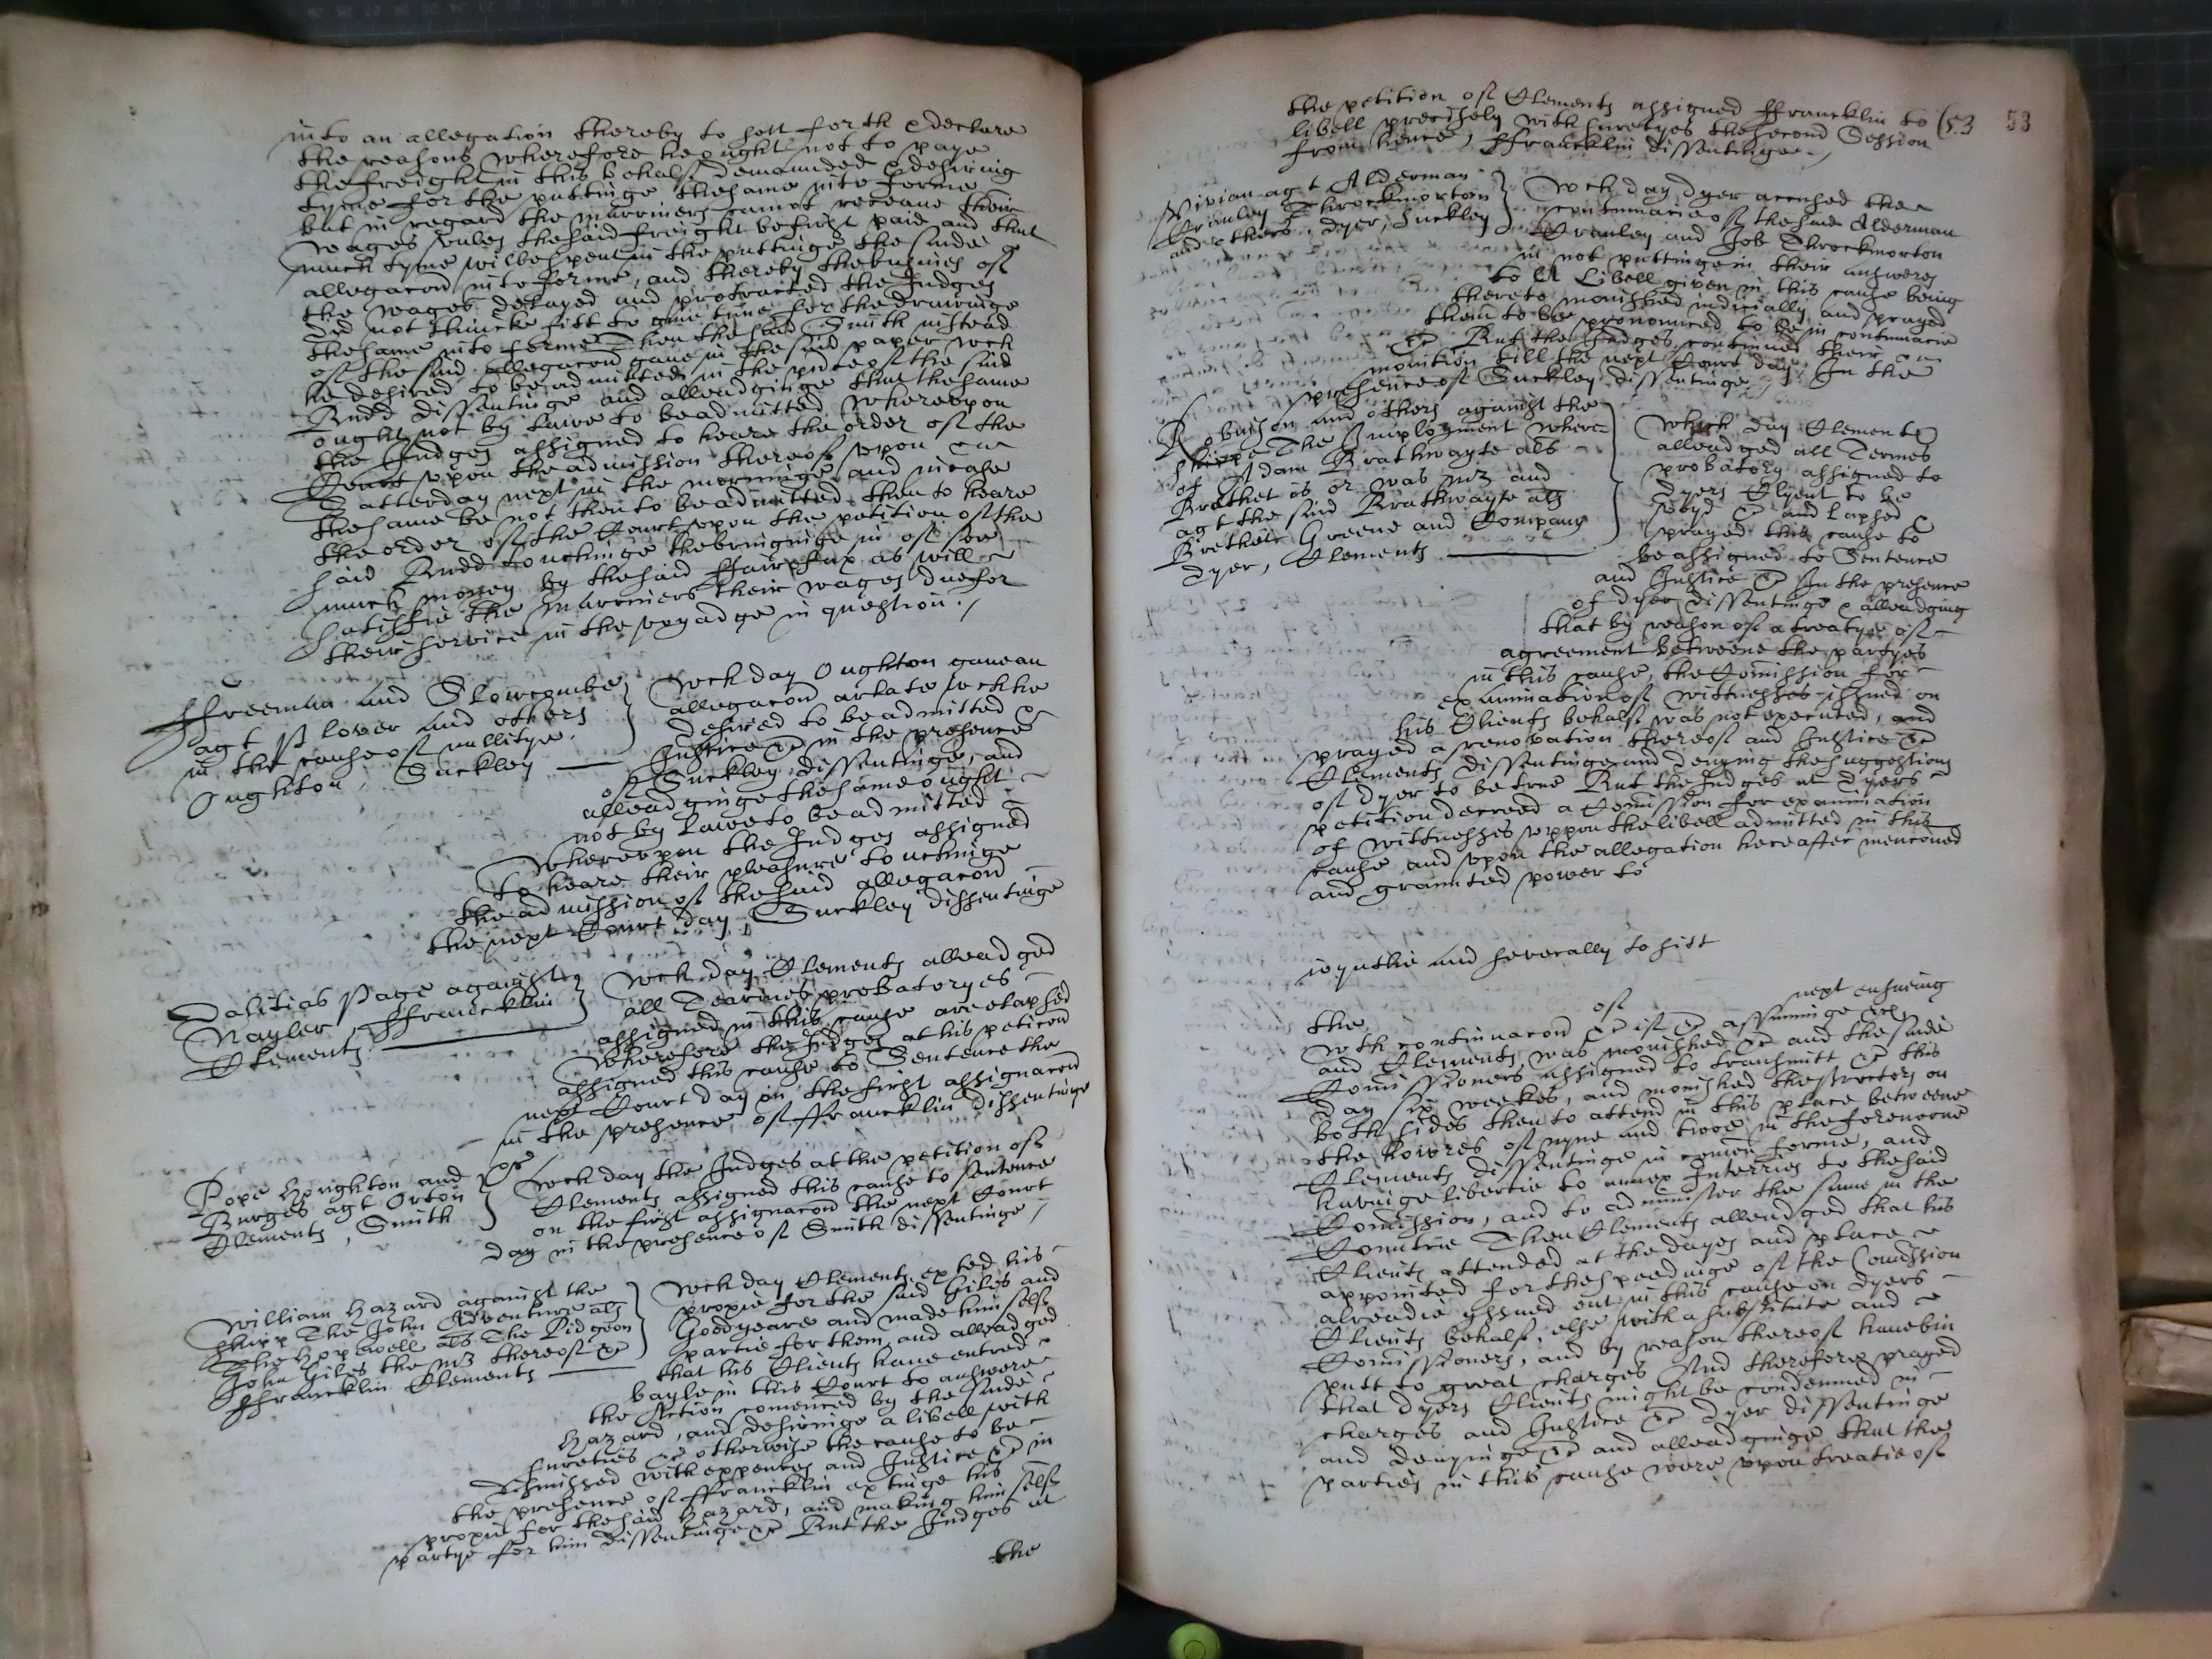 into an allegation thereby to sett forth & declare
the reasons wherefore he ought not to paye
the freight in this behalf demaunded & desiring
tyme for the puttinge the same into forme
but in regard the marriners cannot receaue their
wages vnles the said freight be first paid and that
much tyme wilbe spent in the puttinge the saide
allegacon into forme, and thereby the busines of
the wages delayed and protracted the Judges
did not thincke fitt to giue time for the drawinge
the same into forme Then the said Smith instead
of the said allegacon gaue in the said paper wch
he desired to be admitted in the pnce of the said
Budd dissentinge and alleadginge that the same
ought not by lawe to be admitted, wherevpon
the Judges assigned to heare the order of the
Court vpon the admission thereof vpon
Satterday next in the morninge and in case
the same be not then to be admitted then to heare
the order of the Court vpon the petition of the
said Budd touchinge the bringinge in of soe
much money by the said Fairefax as will
satisfie the Marriners their wages due for
their service in the voyadge in question./
Ffreeman and Slowcombe
agt Plover and others
in the cause of nullitye.
Oughton, Suckley
Wch day Oughton gaue an
allegacon arlate wch he
desired to be admitted &
Justice &c in the presence
of Suckley dissentinge, and
alleadginge the same ought
not by Lawe to be admitted
Wherevpon the Judges assigned
to heare their pleasure touchinge
the admission of the said allegacon
the next Court day, Suckley dissentinge
Dalitias Page against
Nayler, Ffrancklin
Clements
Wch day Clements alleadged
all Tearmes probatoryes
assigned in this cause are elapsed
Wherefore the Judges at his peticon
assigned this cause to Sentence the
next Court day on the first assignacon
in the presence of Ffrancklin dissentinge
Pope Houghton and
Burges agt Orton
Clements, Smith
Wch day the Judges at the petition of
Clements assigned this cause to sentence
on the first assignacon the next Court
day in the presence of Smith dissentinge /
William Hazard against the
shipp The John Adventure als
The Hopewell als The Pidgeon
John Giles the mr thereof &c
Ffrancklin Clements
Wch day Clements exted his
proxie for the said Giles and
Goodyeare and made himself
partie for them, and alleadged
that his Clients haue entred
bayle in this Court to answere
the Action comenced by the saide
Hazard, and desiringe a libell with
sureties &c otherwise the cause to be
dismissed with expences and Justice &c in
the presence of Ffrancklin extinge his
proxie for the said Hazard, and making himself
partye for him dissentinge &c But the Judges at
the
the petition of Clements assigned Ffrancklin to (53 53
libell precisely with suretyes the second Session
from hence, Ffrancklin dissentinge./
Vivian agt Alderman
Cranley Throckmorton
and others, Dyer, Suckley
Wch day Dyer accused the
contumacie of the said Alderman
Cranley and Job Throckmorton
in not puttinge in their answeres
to A Libell given in this cause being
thereto monished iudicially, and prayed
them to be pronounced to be in contumacie
&c But the Judges continued their
monition till the next Court day, In the
presence of Suckley dissentinge
Robinson and others against the
shippe The Imployment where
of Adam Brathwayte als
Brathet is or was mr and
agt the said Brathwayte als
Brethett Greene and Company
Dyer, Clements
Which day Clements
alleadged all Termes
probatory assigned to
Dyers Clyent to be
past &c and lapsed &
prayed this cause to
be assigned to Sentence
and Justice &c In the presence
of Dyer dissentinge & alleadging
that by reason of a treatye of
agreement betweene the partyes
in this cause, the Comission for
examination of wittnesses issued on
his Clients behalf was not executed, and
prayed a renovation thereof and Justice &c
Clements dissentinge and denying the suggestions
of Dyer to be true But the Judges at Dyers
petition decreed a Comission for examination
of wittnesses vppon the libell admitted in this
cause and vpon the allegation hereafter mencioned
and graunted power to
ioyntlie and severally to sitt
the of next ensueing
wth continuacon &c ist &c assuminge &c
and Clements was monished &c and the saide
Comissioners assigned to transmitt &c this
day six weekes, and monished the Proctors on
both sides then to attend in this place betweene
the howres of nyne and twoe in the forenoone
Clements dissentinge in comon forme, and
havinge libertie to annex Interries to the said
Comission, and to administer the same in the
Countrie Then Clements alleadged that his
Clients attended at the dayes and place
appointed for the speedinge of the Comission
alreadie yssued out in this cause on Dyers
Clients behalf, else with a substitute and
Comissioners, and by reason thereof haue bin
putt to great charges And therefore prayed
that Dyers Clients might be condemned in
charges and Justice &c Dyer dissentinge
and denyinge &c and alleadginge that the
parties in this cause were vpon treatie of